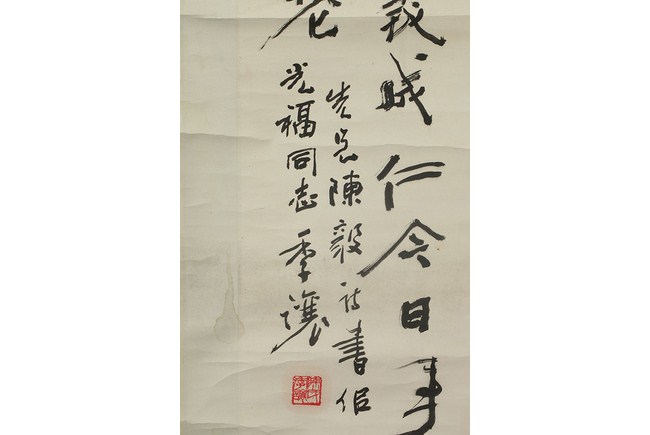 義成仁今日事
花
先兄陳毅詩書佀
光福同志 季讓